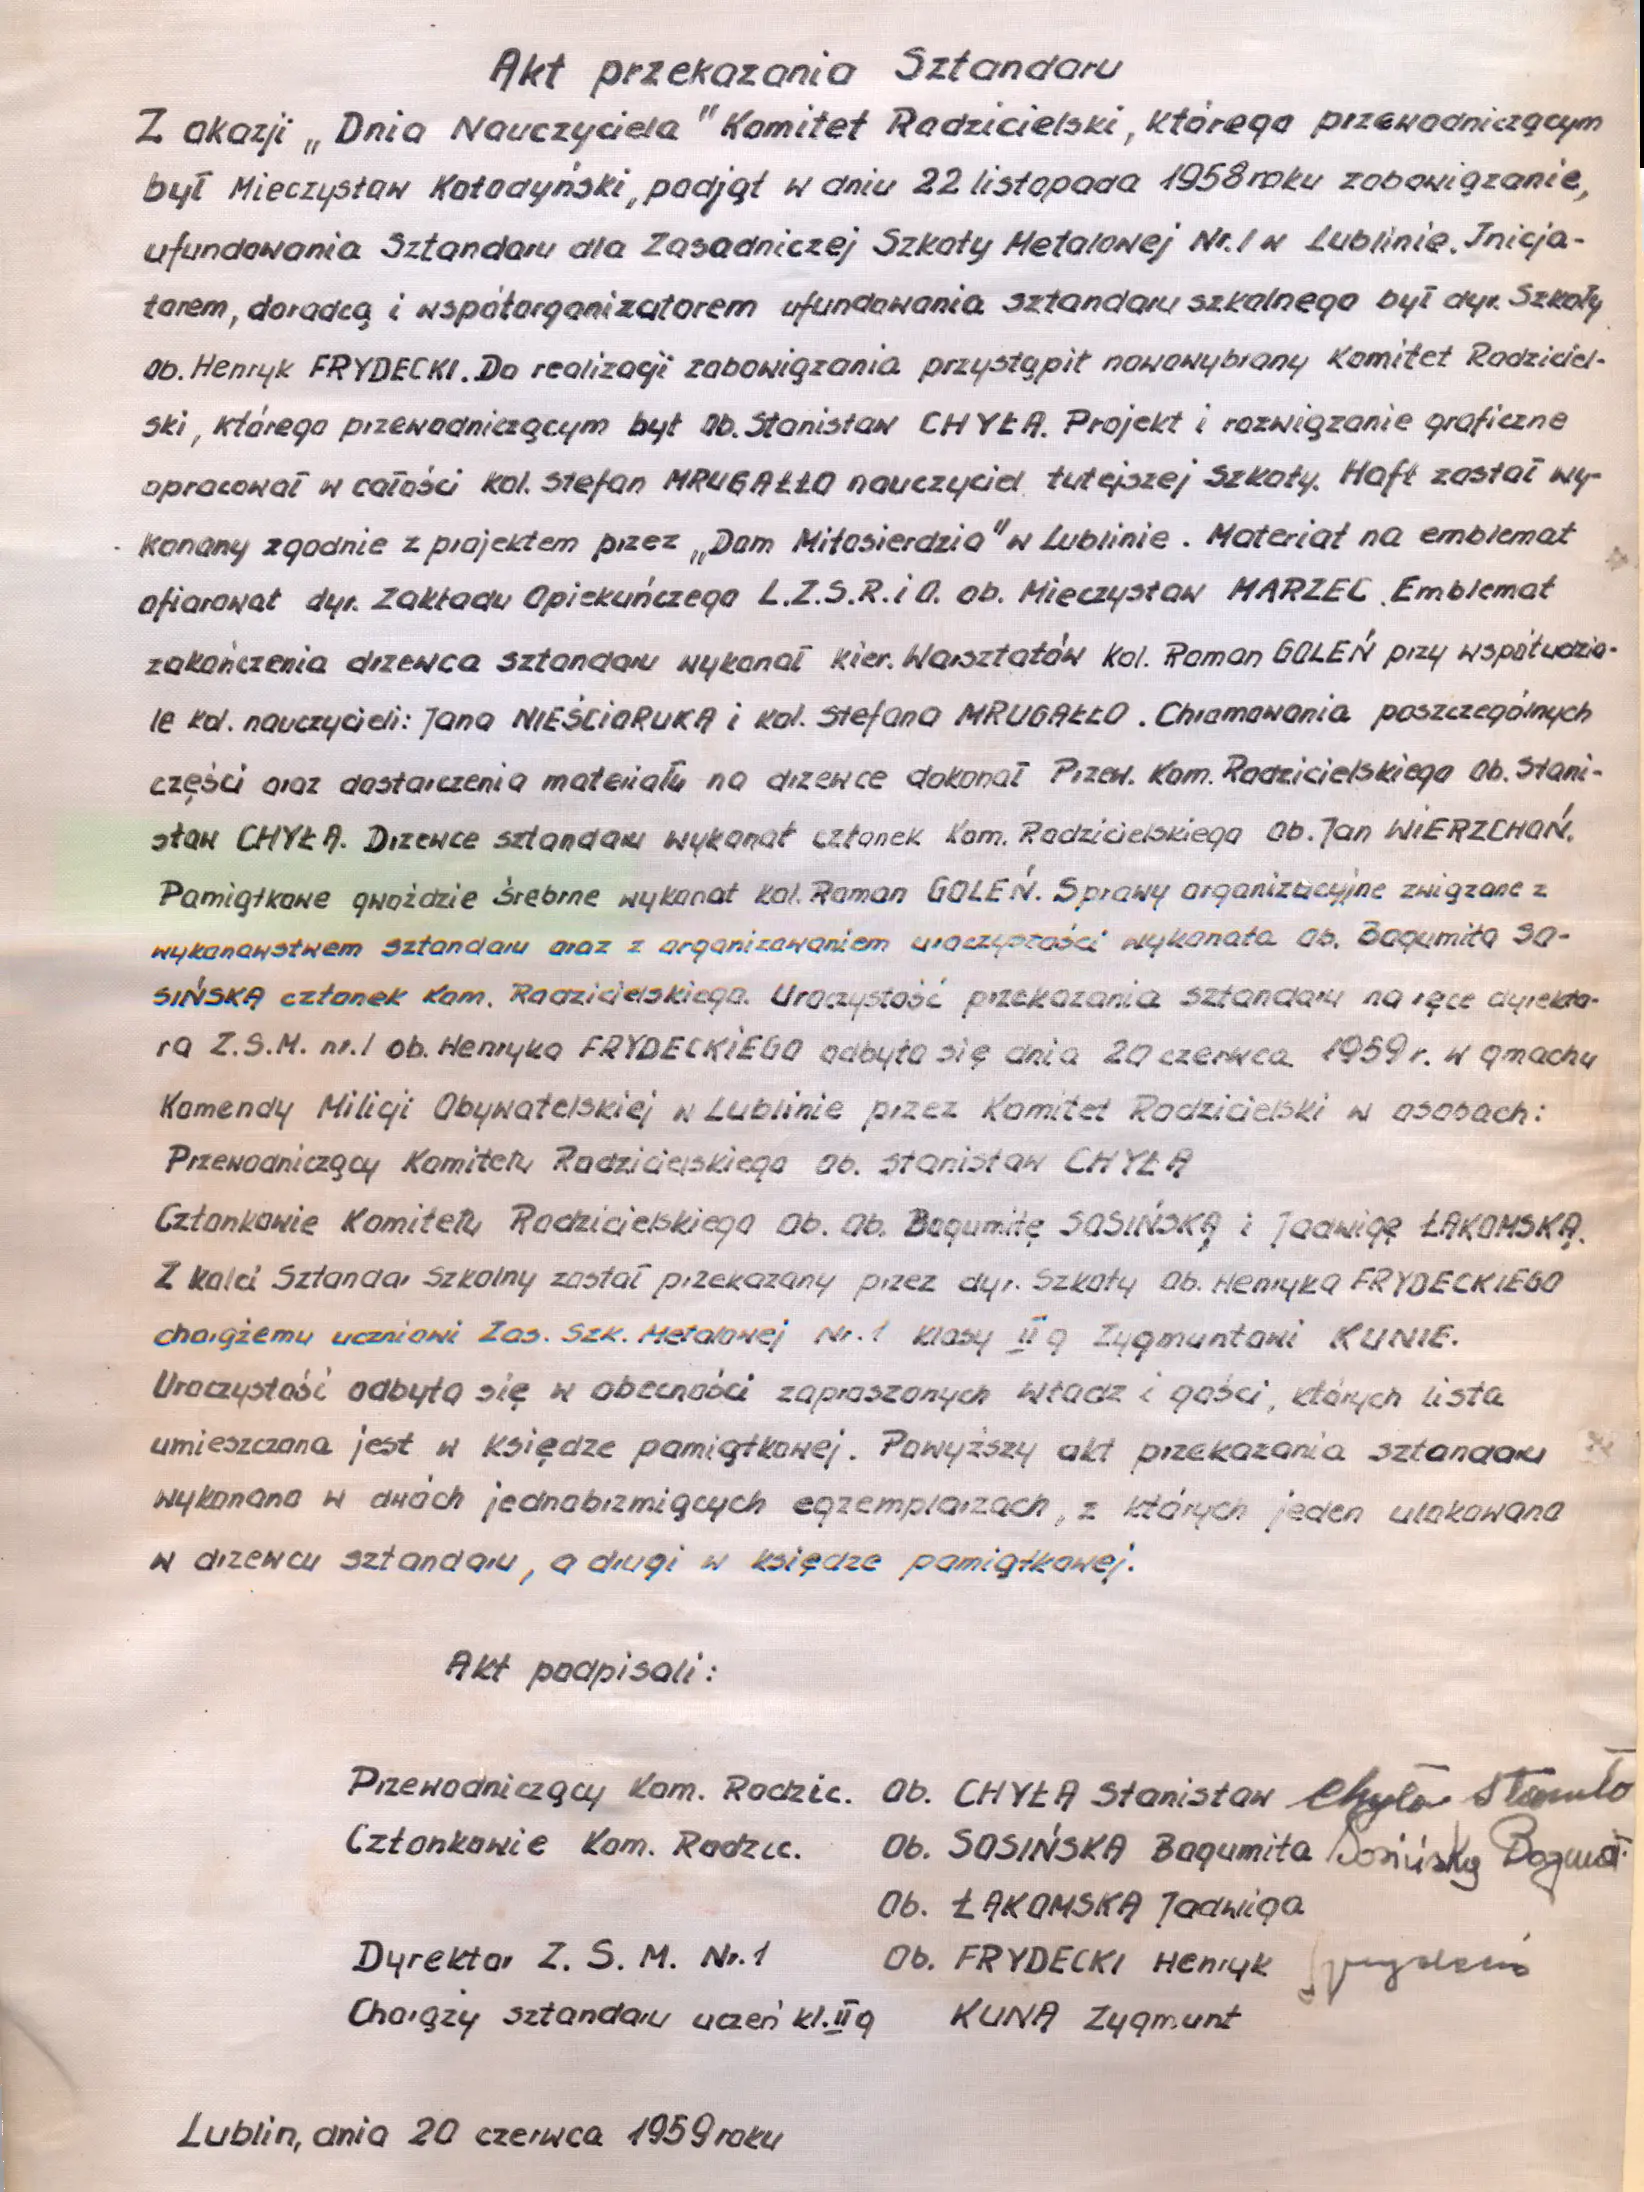 Akt przekazania Sztandaru
Z okazji „Dnia Nauczyciela" Komitet Rodzicielski, którego przewodniczącym
był Mieczysław Kołodyński, podjął w dniu 22 listopada 1958 roku zobowiązanie,
ufundowania Sztandaru dla Zasadniczej Szkoły Metalowej Nr.1 w Lublinie. Inicja-
torem, doradcą i współorganizatorem ufundowania sztandaru szkolnego był dyr. Szkoły
Ob. Henryk FRYDECKI. Do realizacji zobowiązania przystąpił nowowybrany Komitet Rodziciel-
ski, którego przewodniczącym był Ob. Stanisław CHYŁA. Projekt i rozwiązanie graficzne
opracował w całości kol. Stefan MRUGAŁŁO nauczyciel tutejszej Szkoły. Haft został wy-
konany zgodnie z projektem przez „Dom Miłosierdzia" w Lublinie. Materiał na emblemat
ofiarował dyr. Zakładu Opiekuńczego L.Z.S.R. i O. ob. Mieczysław MARZEC. Emblemat
zakończenia drzewca sztandaru wykonał kier. Warsztatów kol. Roman GOLEŃ przy współudzia-
le kol. nauczycieli: Jana NIEŚCIORUKA i kol. Stefana MRUGAŁŁO. Chromowania poszczególnych
części oraz dostarczenia materiału na drzewce dokonał Przew. Kom. Rodzicielskiego Ob. Stani-
sław CHYŁA. Drzewce sztandaru wykonał członek Kom. Rodzicielskiego Ob. Jan WIERZCHOŃ.
Pamiątkowe gwoździe śrebrne wykonał kol. Roman GOLEŃ. Sprawy organizacyjne związane z
wykonawstwem sztandaru oraz z organizowaniem uroczystości wykonała ob. Bogumiła SO-
SIŃSKA członek Kom. Rodzicielskiego. Uroczystość przekazania sztandaru na ręce dyrekto-
ra Z.S.M. nr.1 ob. Henryka FRYDECKIEGO odbyło się dnia 20 czerwca 1959 r. w gmachu
Komendy Milicji Obywatelskiej w Lublinie przez Komitet Rodzicielski w osobach:
Przewodniczący Komitetu Rodzicielskiego ob. Stanisław CHYŁA
Członkowie Komitetu Rodzicielskiego Ob. Ob. Bogumiłę SOSIŃSKĄ i Jadwigę ŁAKOMSKĄ.
Z kolei Sztandar Szkolny został przekazany przez dyr. Szkoły Ob. Henryka FRYDECKIEGO
chorążemu uczniowi Zas. Szk. Metalowej Nr.1 klasy IIg Zygmuntowi KUNIE.
Uroczystość odbyła się w obecności zaproszonych władz i gości, których lista
umieszczona jest w Księdze pamiątkowej. Powyższy akt przekazania sztandaru
wykonano w dwóch jednobrzmiących egzemplarzach, z których jeden ulokowano
w drzewcu sztandaru, a drugi w księdze pamiątkowej.
Akt podpisali:
Przewodniczący Kom. Rodzic. Ob. CHYŁA Stanisław Chyła
Członkowie Kom. Rodzic. Ob. SOSIŃSKA Bogumiła Sosińska
Ob. ŁAKOMSKA Jadwiga
Dyrektor Z. S. M. Nr.1 Ob. FRYDECKI Henryk
Chorąży sztandaru uczeń kl.IIg KUNA Zygmunt
Lublin, dnia 20 czerwca 1959 roku